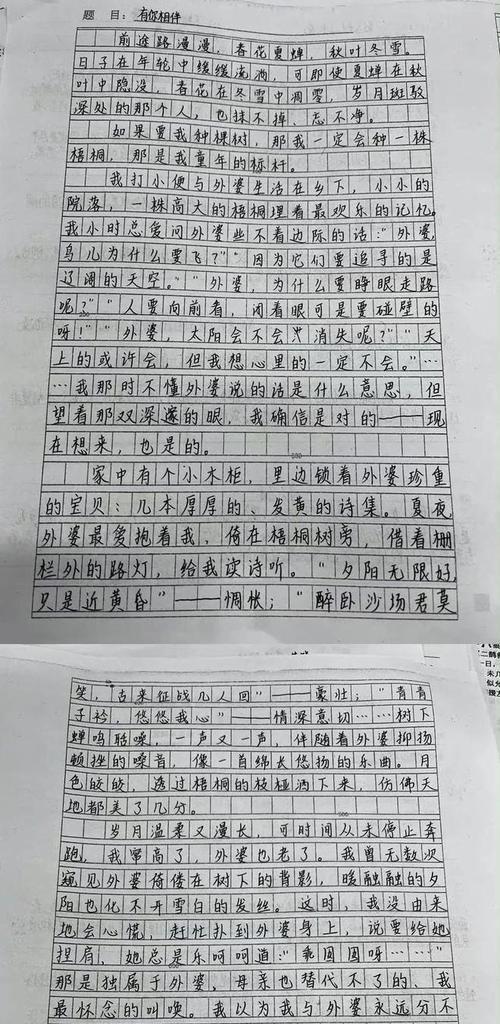 题 目：有你相伴
前途路漫漫，春花夏蝉，秋叶冬雪。
日子在年轮中缓缓流淌，可即使夏蝉在秋
叶中隐没，春花在冬雪中凋零，岁月斑驳
深处的那个人，也抹不掉、忘不净。
如果要我种棵树，那我一定会种一株
梧桐，那是我童年的标杆。
我打小便与外婆生活在乡下，小小的
院落，一株高大的梧桐埋着最欢乐的记忆。
我小时总爱问外婆些不着边际的话：“外婆，
鸟儿为什么要飞？”“因为它们要追寻的是
辽阔的天空。”“外婆，为什么要睁眼走路
呢？”“人要向前看，闭着眼可是要碰壁的
呀！”“外婆，太阳会不会消失呢？”“天
上的或许会，但我想心里的一定不会。”…
…我那时不懂外婆说的话是什么意思，但
望着那双深邃的眼，我确信是对的——现
在想来，也是的。
家中有个小木柜，里边锁着外婆珍重
的宝贝：几本厚厚的、发黄的诗集。夏夜
外婆最爱抱着我，倚在梧桐树旁，借着栅
栏外的路灯，给我读诗听。“夕阳无限好，
只是近黄昏”——惆怅；“醉卧沙场君莫
笑，古来征战几人回”——豪壮；“青青
子衿，悠悠我心”——情深意切……树下
蝉鸣聒噪，一声又一声，伴随着外婆抑扬
顿挫的嗓音，像一首绵长悠扬的乐曲。月
色皎皎，透过梧桐的枝桠洒下来，仿佛天
地都美了几分。
岁月温柔又漫长，可时间从未停止奔
跑，我窜高了，外婆也老了。我曾无数次
窥见外婆倚偻在树下的背影，暖融融的夕
阳也化不开雪白的发丝。这时，我没由来
地会心慌，赶忙扑到外婆身上，说要给她
捏肩，她总是乐呵呵道：“乖囡囡呀……”
那是独属于外婆，母亲也替代不了的、我
最怀念的叫唤。我以为我与外婆永远分不